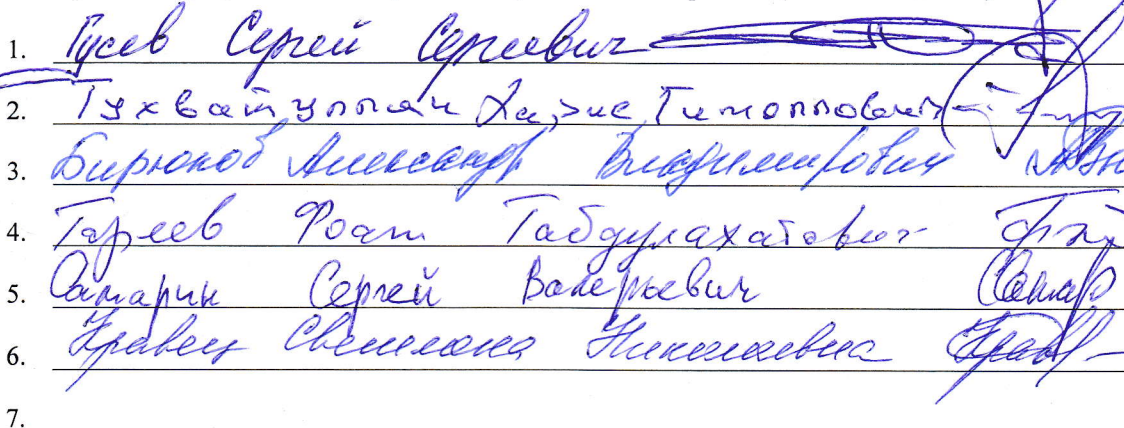 1. Гусев Сергей Сергеевич
2. Тухватуллин
3. Бирюков Александр Владимирович
4. Гареев Фоат Габдулахатович
5. Самарин Сергей Валерьевич
6. Кравец Светлана Николаевна
7.